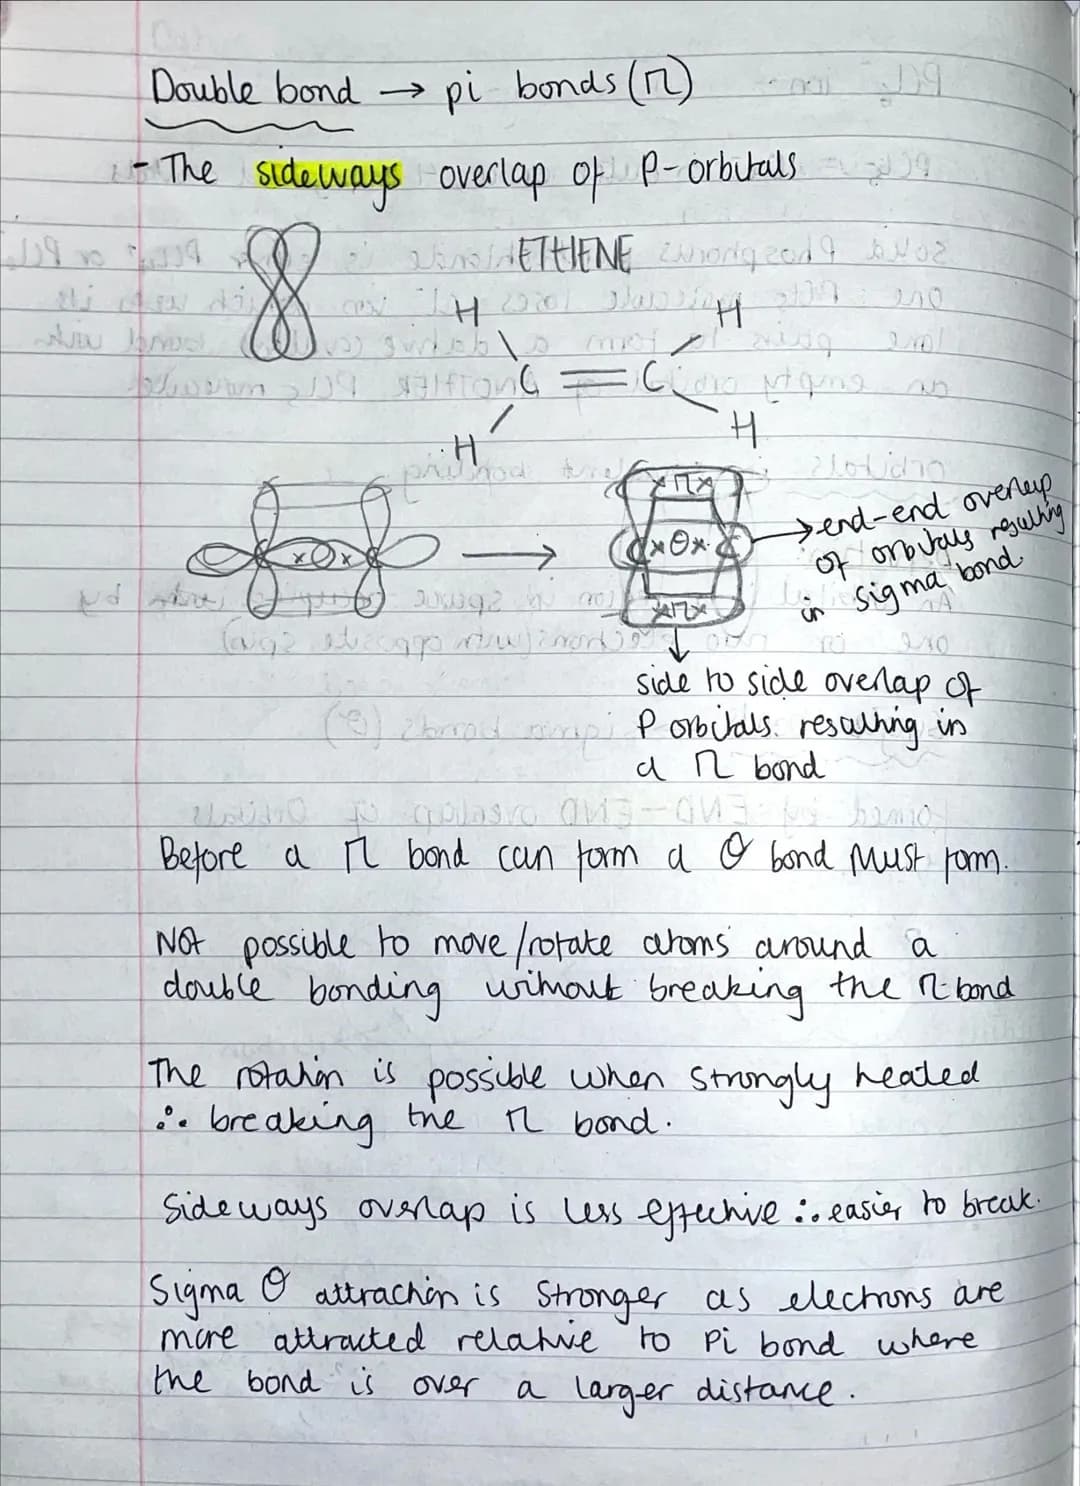 Double bond → pi bonds (π)
- The sideways overlap of P-orbitals
ETHENE
H H
C = C
H H
x σ x
x π x
x σ x
x π x
→ end-end overlap
of orbitals resulting
in sigma bond.
side to side overlap of
P orbitals. resulting in
a π bond
Before a π bond can form a σ bond Must form.
Not possible to move/rotate atoms around a
double bonding without breaking the π bond
The rotation is possible when strongly heated
∴ breaking the π bond.
Sideways overlap is less effective ∴ easier to break.
Sigma σ attraction is stronger as electrons are
more attracted relative to Pi bond where
the bond is over a larger distance.